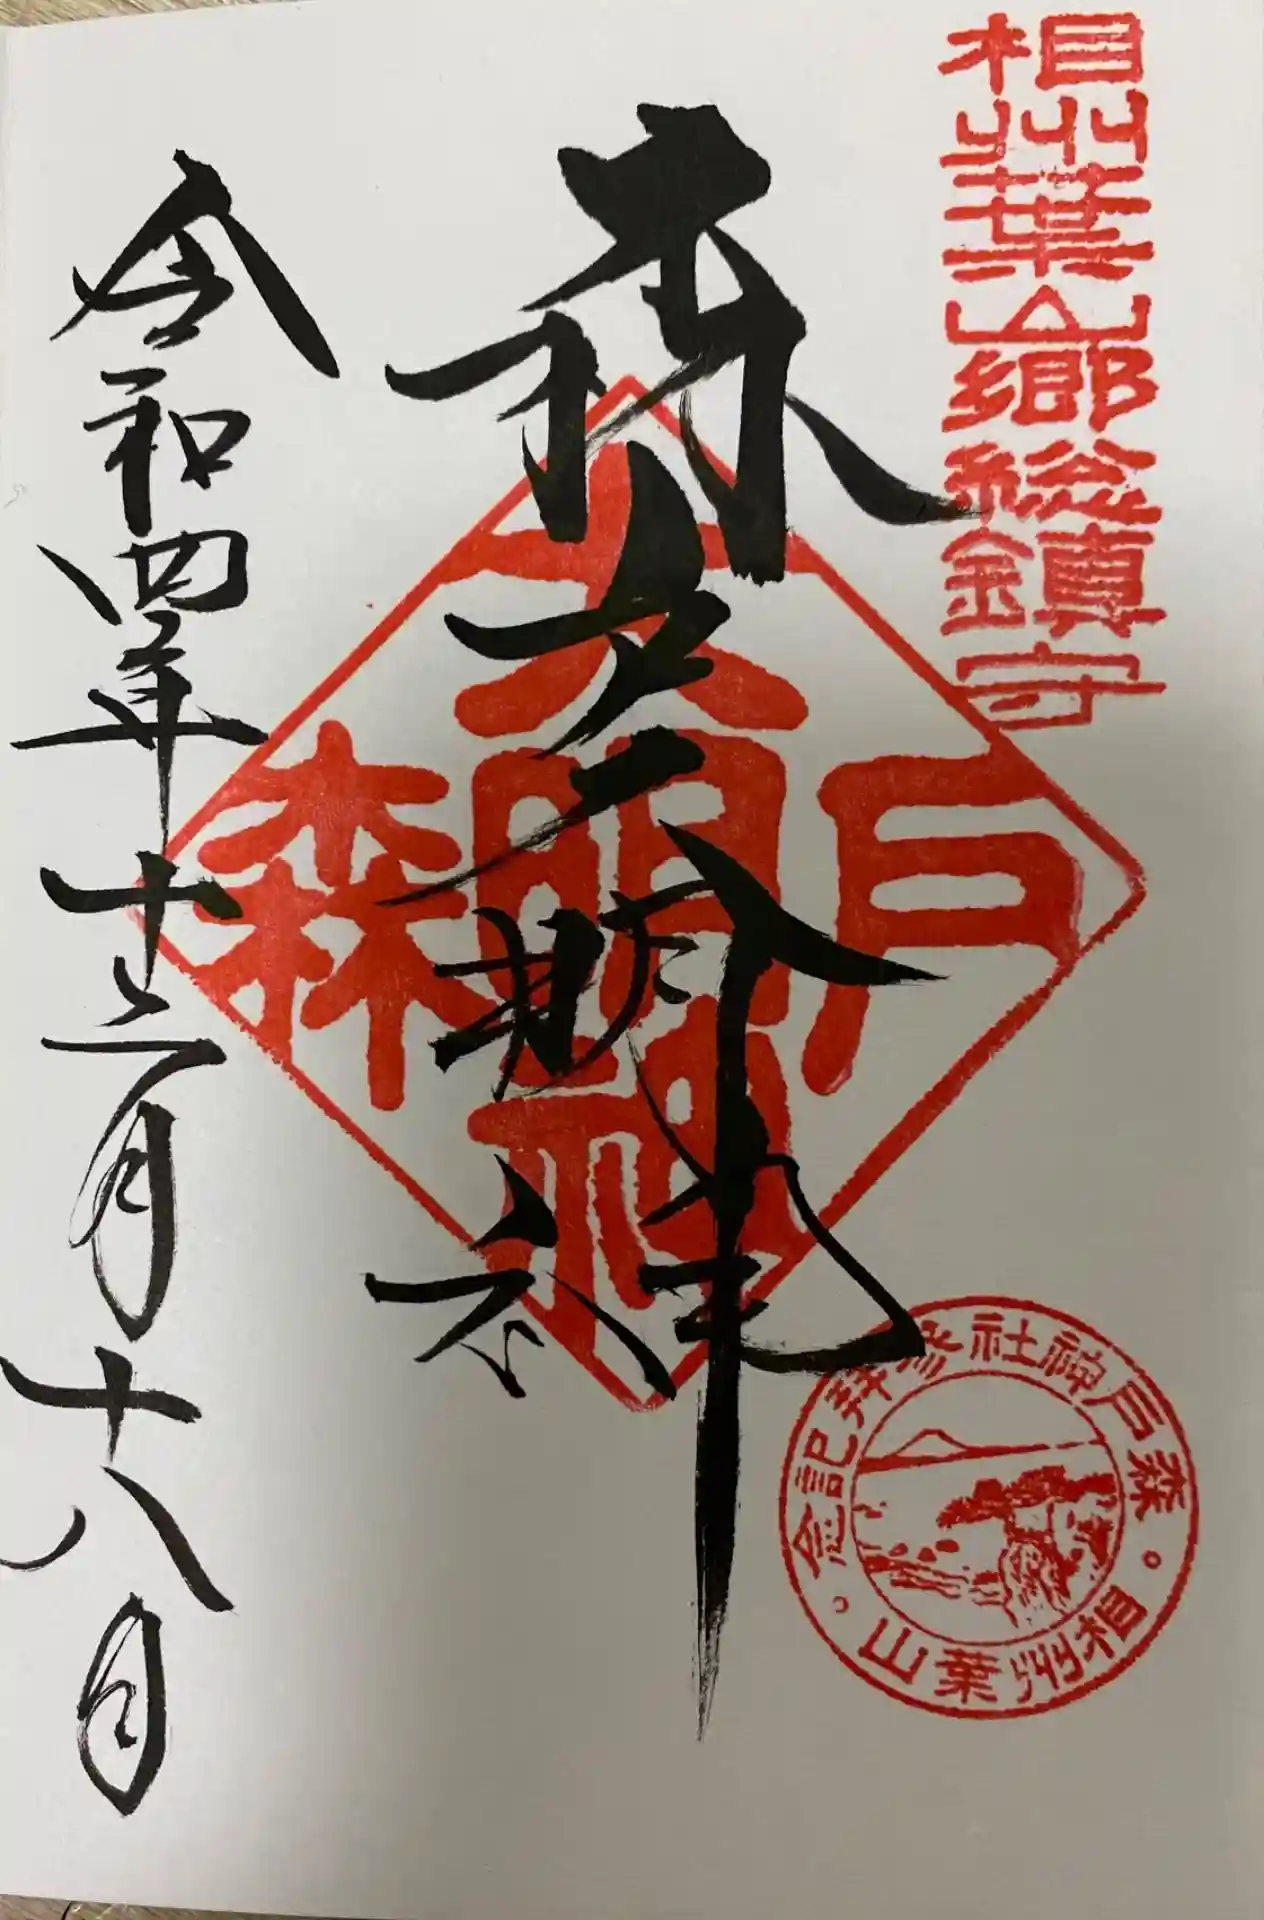 相州葉山郷総鎮守
森戸大明神
森戸大明神
令和四年十二月十八日
森戸神社参拝記念
相州葉山